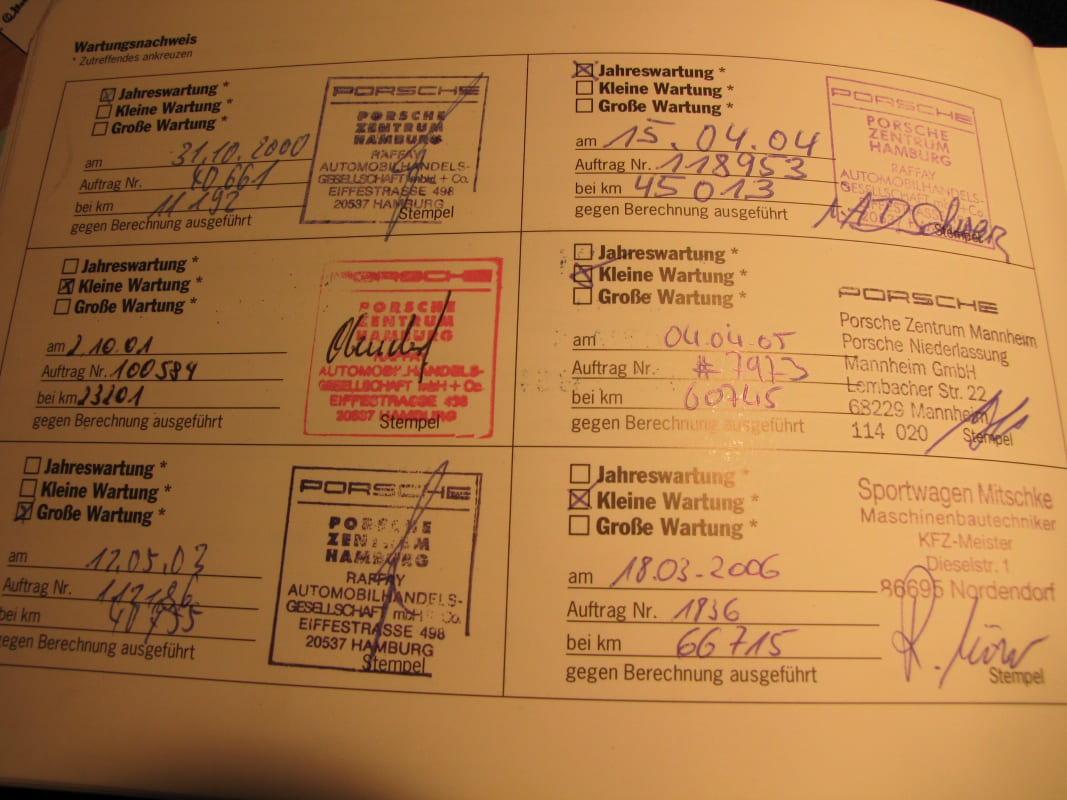 Wartungsnachweis
* Zutreffendes ankreuzen
Jahreswartung *
Kleine Wartung *
Große Wartung *
am 31.10.2000
Auftrag Nr. 40661
bei km 11192
gegen Berechnung ausgeführt
PORSCHE
PORSCHE
ZENTRUM
HAMBURG
RAFFAY
AUTOMOBILHANDELS-
GESELLSCHAFT mbH + Co.
EIFFESTRASSE 498
20537 HAMBURG
Stempel
Jahreswartung *
Kleine Wartung *
Große Wartung *
am 2.10.01
Auftrag Nr. 100584
bei km 23201
gegen Berechnung ausgeführt
PORSCHE
PORSCHE
ZENTRUM
HAMBURG
RAFFAY
AUTOMOBILHANDELS-
GESELLSCHAFT mbH + Co.
EIFFESTRASSE 498
20537 HAMBURG
Stempel
Jahreswartung *
Kleine Wartung *
Große Wartung *
am 12.05.03
Auftrag Nr.
bei km
gegen Berechnung ausgeführt
PORSCHE
PORSCHE
ZENTRUM
HAMBURG
RAFFAY
AUTOMOBILHANDELS-
GESELLSCHAFT mbH + Co.
EIFFESTRASSE 498
20537 HAMBURG
Stempel
Jahreswartung *
Kleine Wartung *
Große Wartung *
am 15.04.04
Auftrag Nr. 118953
bei km 45013
gegen Berechnung ausgeführt
PORSCHE
PORSCHE
ZENTRUM
HAMBURG
RAFFAY
AUTOMOBILHANDELS-
GESELLSCHAFT mbH + Co.
Stempel
Jahreswartung *
Kleine Wartung *
Große Wartung *
am 04.04.05
Auftrag Nr. # 7973
bei km 60745
gegen Berechnung ausgeführt
PORSCHE
Porsche Zentrum Mannheim
Porsche Niederlassung
Mannheim GmbH
Lembacher Str. 22
68229 Mannheim
114 020
Stempel
Jahreswartung *
Kleine Wartung *
Große Wartung *
am 18.03-2006
Auftrag Nr. 1836
bei km 66715
gegen Berechnung ausgeführt
Sportwagen Mitschke
Maschinenbautechniker
KFZ-Meister
Dieselstr. 1
86695 Nordendorf
Stempel